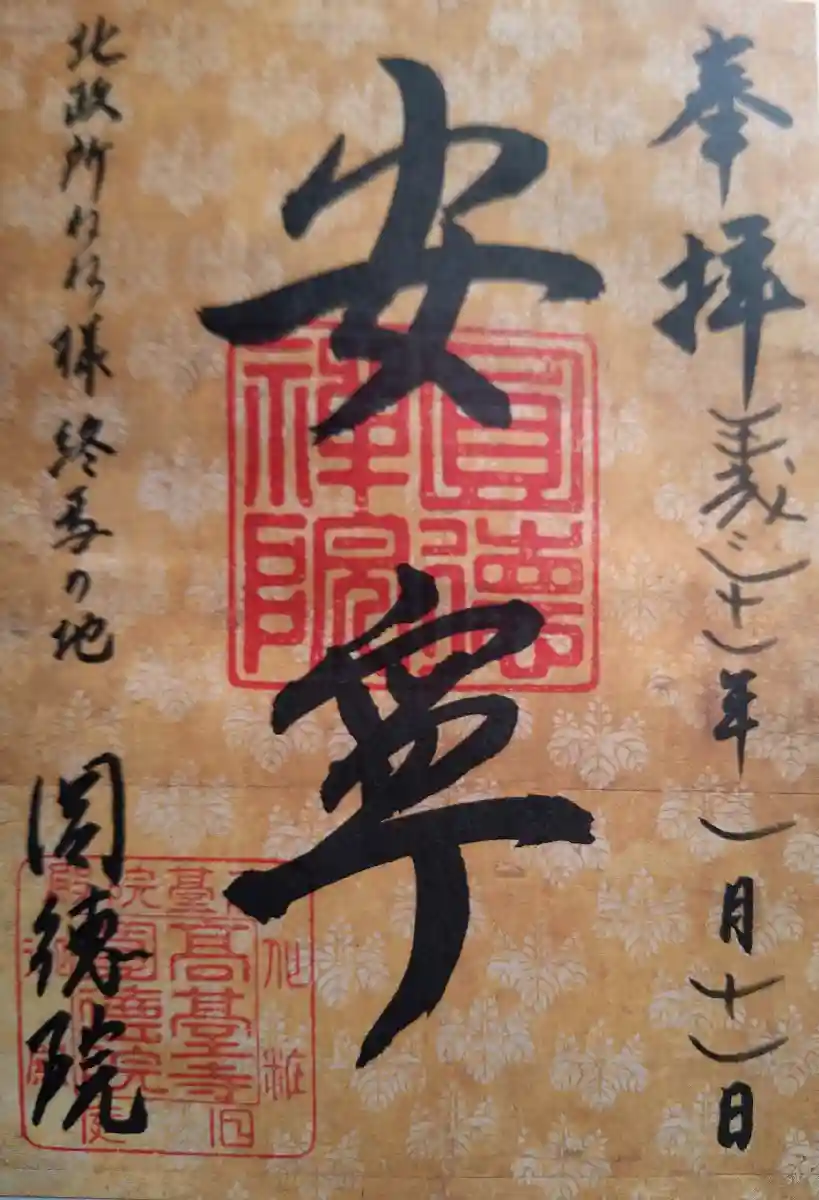 奉拝 平成三十一年 一月十一日
安寧
圓德
禪院
北政所ねね様終焉の地
圓徳院
高臺寺
圓德院